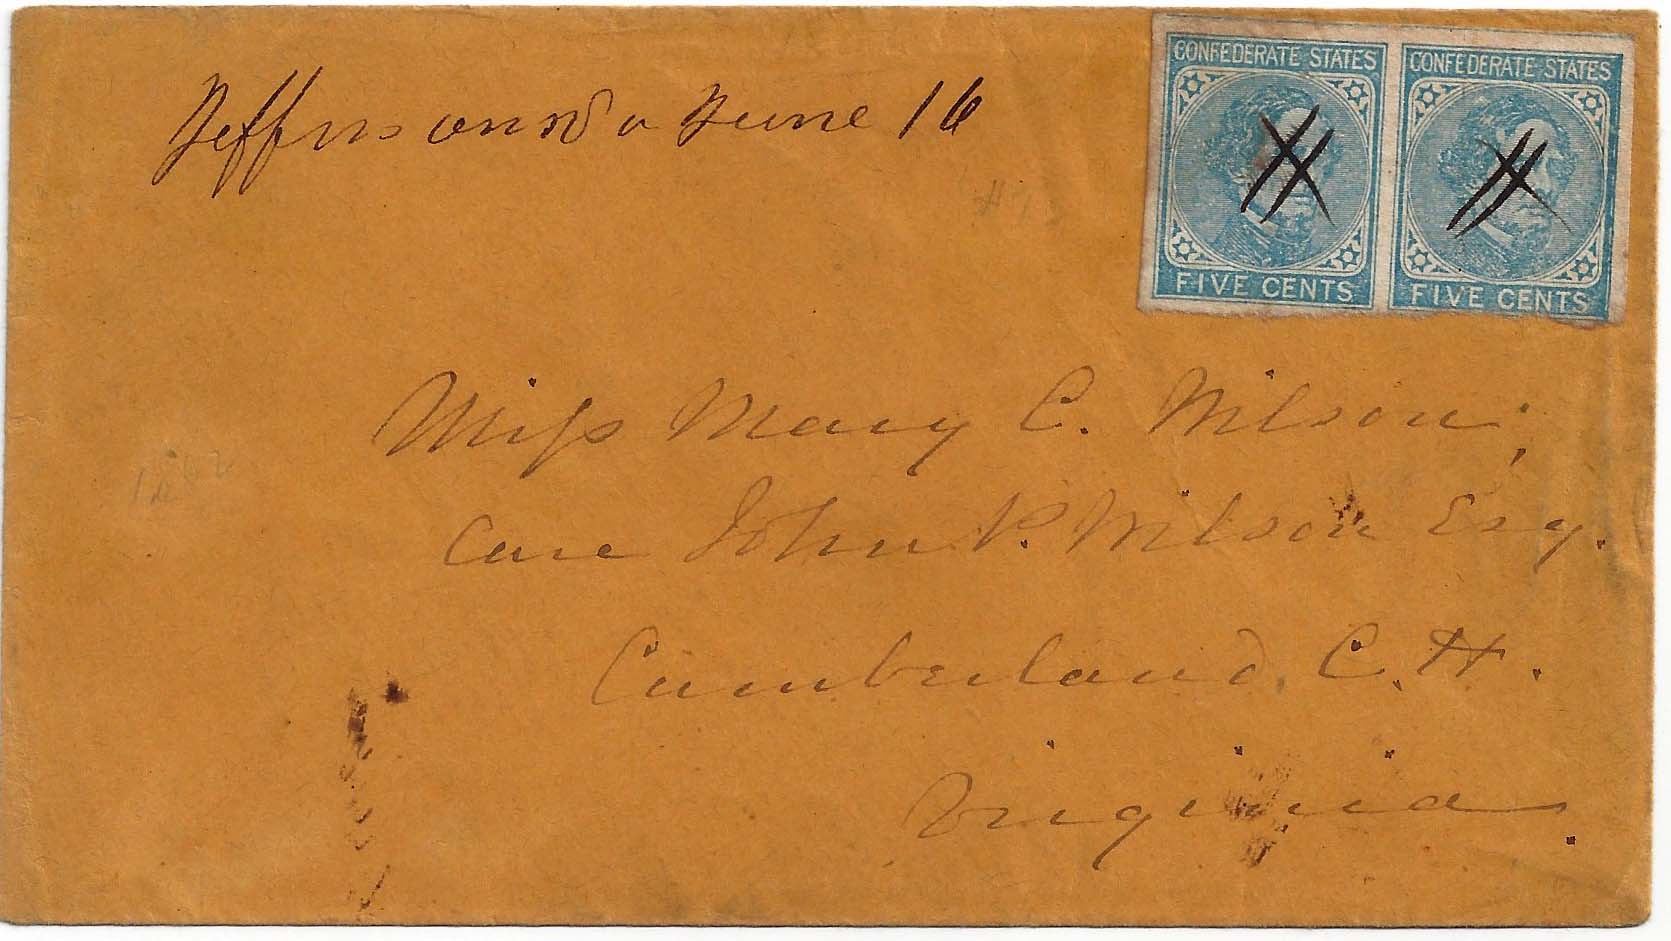 CONFEDERATE STATES CONFEDERATE STATES
FIVE CENTS FIVE CENTS
Jefferson Va June 16
Miss Mary C. Wilson,
Care John P. Wilson Esq.
Cumberland, C. H.
Virginia.
1862